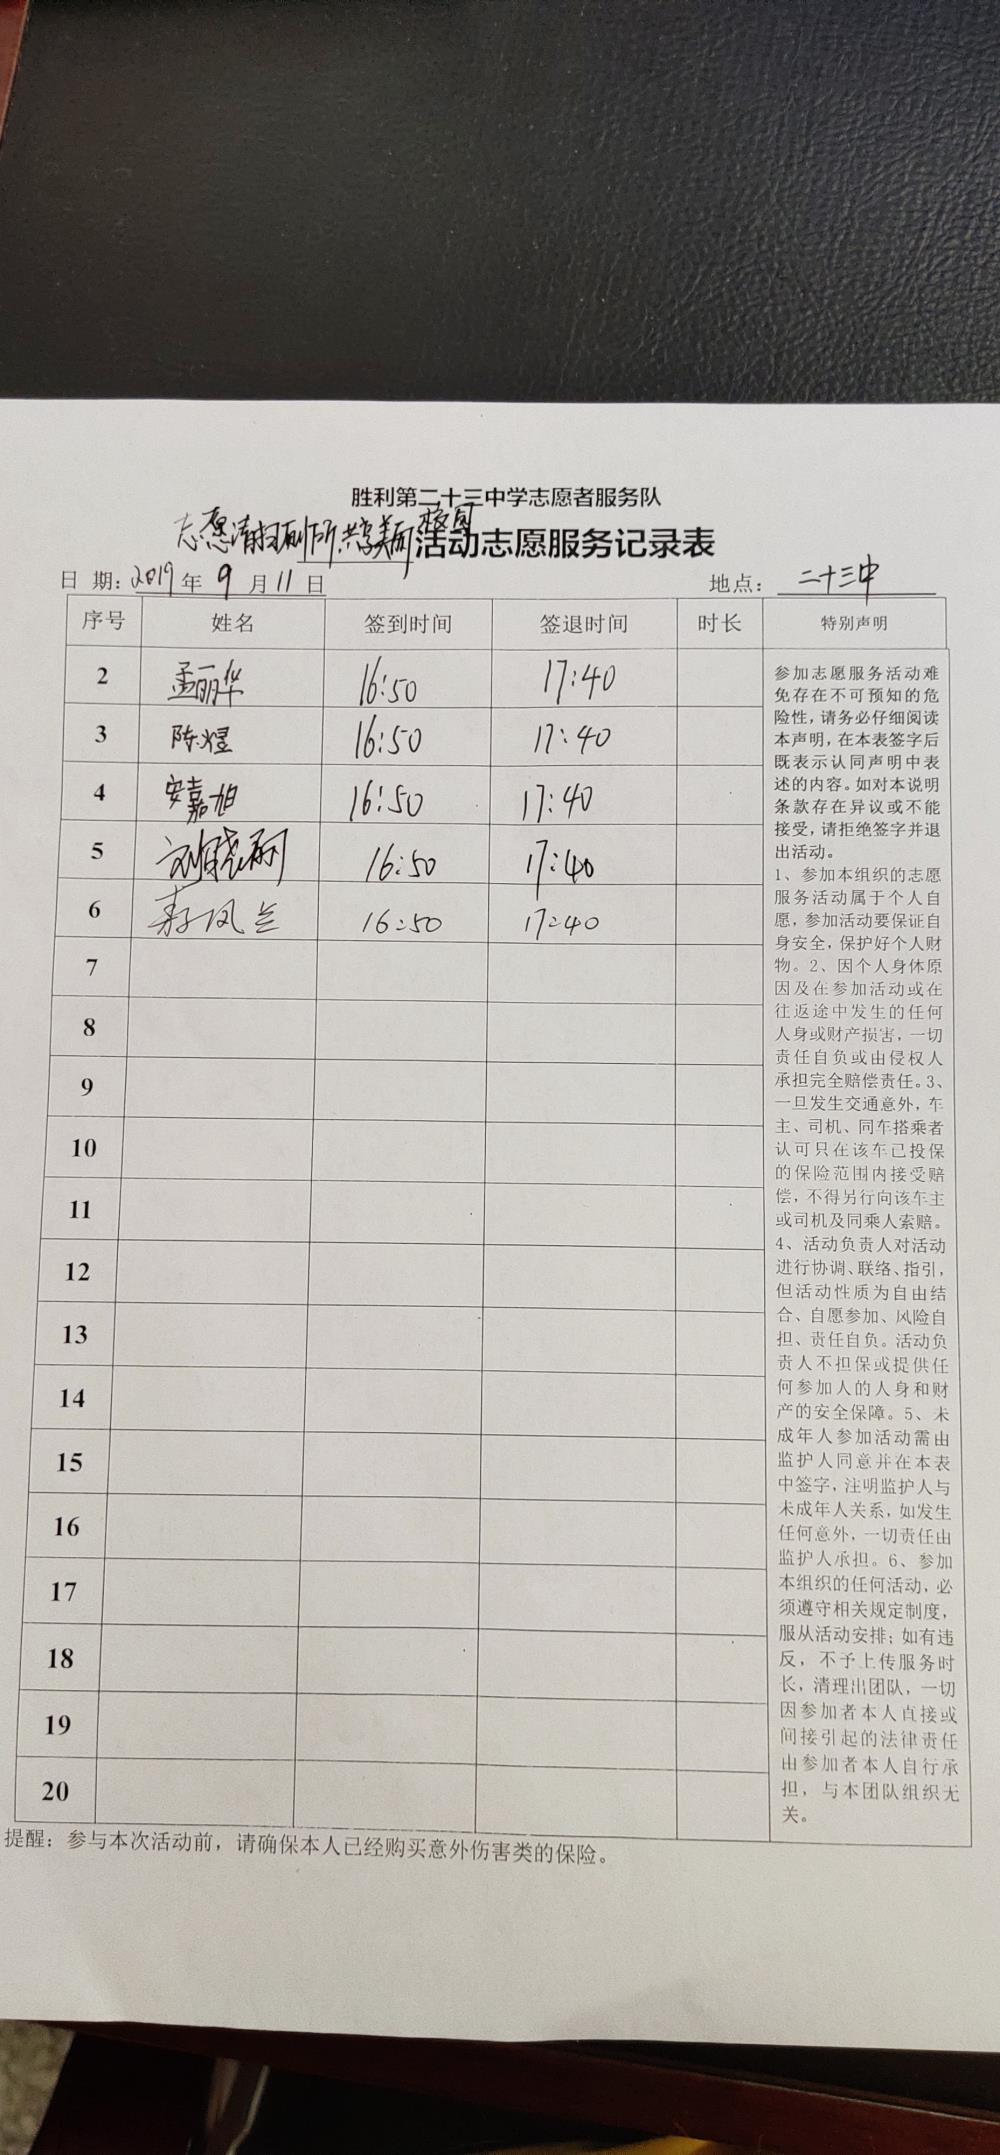 胜利第二十三中学志愿者服务队
志愿清扫厕所,共享美丽校园活动志愿服务记录表
日 期：2019年 9 月 11 日 地点： 二十三中
序号 姓名 签到时间 签退时间 时长 特别声明
2 孟丽华 16:50 17:40
3 陈煜 16:50 17:40
4 安嘉旭 16:50 17:40
5 刘晓丽 16:50 17:40
6 凤兰 16:50 17:40
7
8
9
10
11
12
13
14
15
16
17
18
19
20
参加志愿服务活动难
免存在不可预知的危
险性，请务必仔细阅读
本声明，在本表签字后
既表示认同声明中表
述的内容。如对本说明
条款存在异议或不能
接受，请拒绝签字并退
出活动。
1、参加本组织的志愿
服务活动属于个人自
愿，参加活动要保证自
身安全，保护好个人财
物。2、因个人身体原
因及在参加活动或在
往返途中发生的任何
人身或财产损害，一切
责任自负或由侵权人
承担完全赔偿责任。3、
一旦发生交通意外，车
主、司机、同车搭乘者
认可只在该车已投保
的保险范围内接受赔
偿，不得另行向该车主
或司机及同乘人索赔。
4、活动负责人对活动
进行协调、联络、指引，
但活动性质为自由结
合、自愿参加、风险自
担、责任自负。活动负
责人不担保或提供任
何参加人的人身和财
产的安全保障。5、未
成年人参加活动需由
监护人同意并在本表
中签字，注明监护人与
未成年人关系，如发生
任何意外，一切责任由
监护人承担。6、参加
本组织的任何活动，必
须遵守相关规定制度，
服从活动安排；如有违
反，不予上传服务时
长，清理出团队，一切
因参加者本人直接或
间接引起的法律责任
由参加者本人自行承
担，与本团队组织无
关。
提醒：参与本次活动前，请确保本人已经购买意外伤害类的保险。